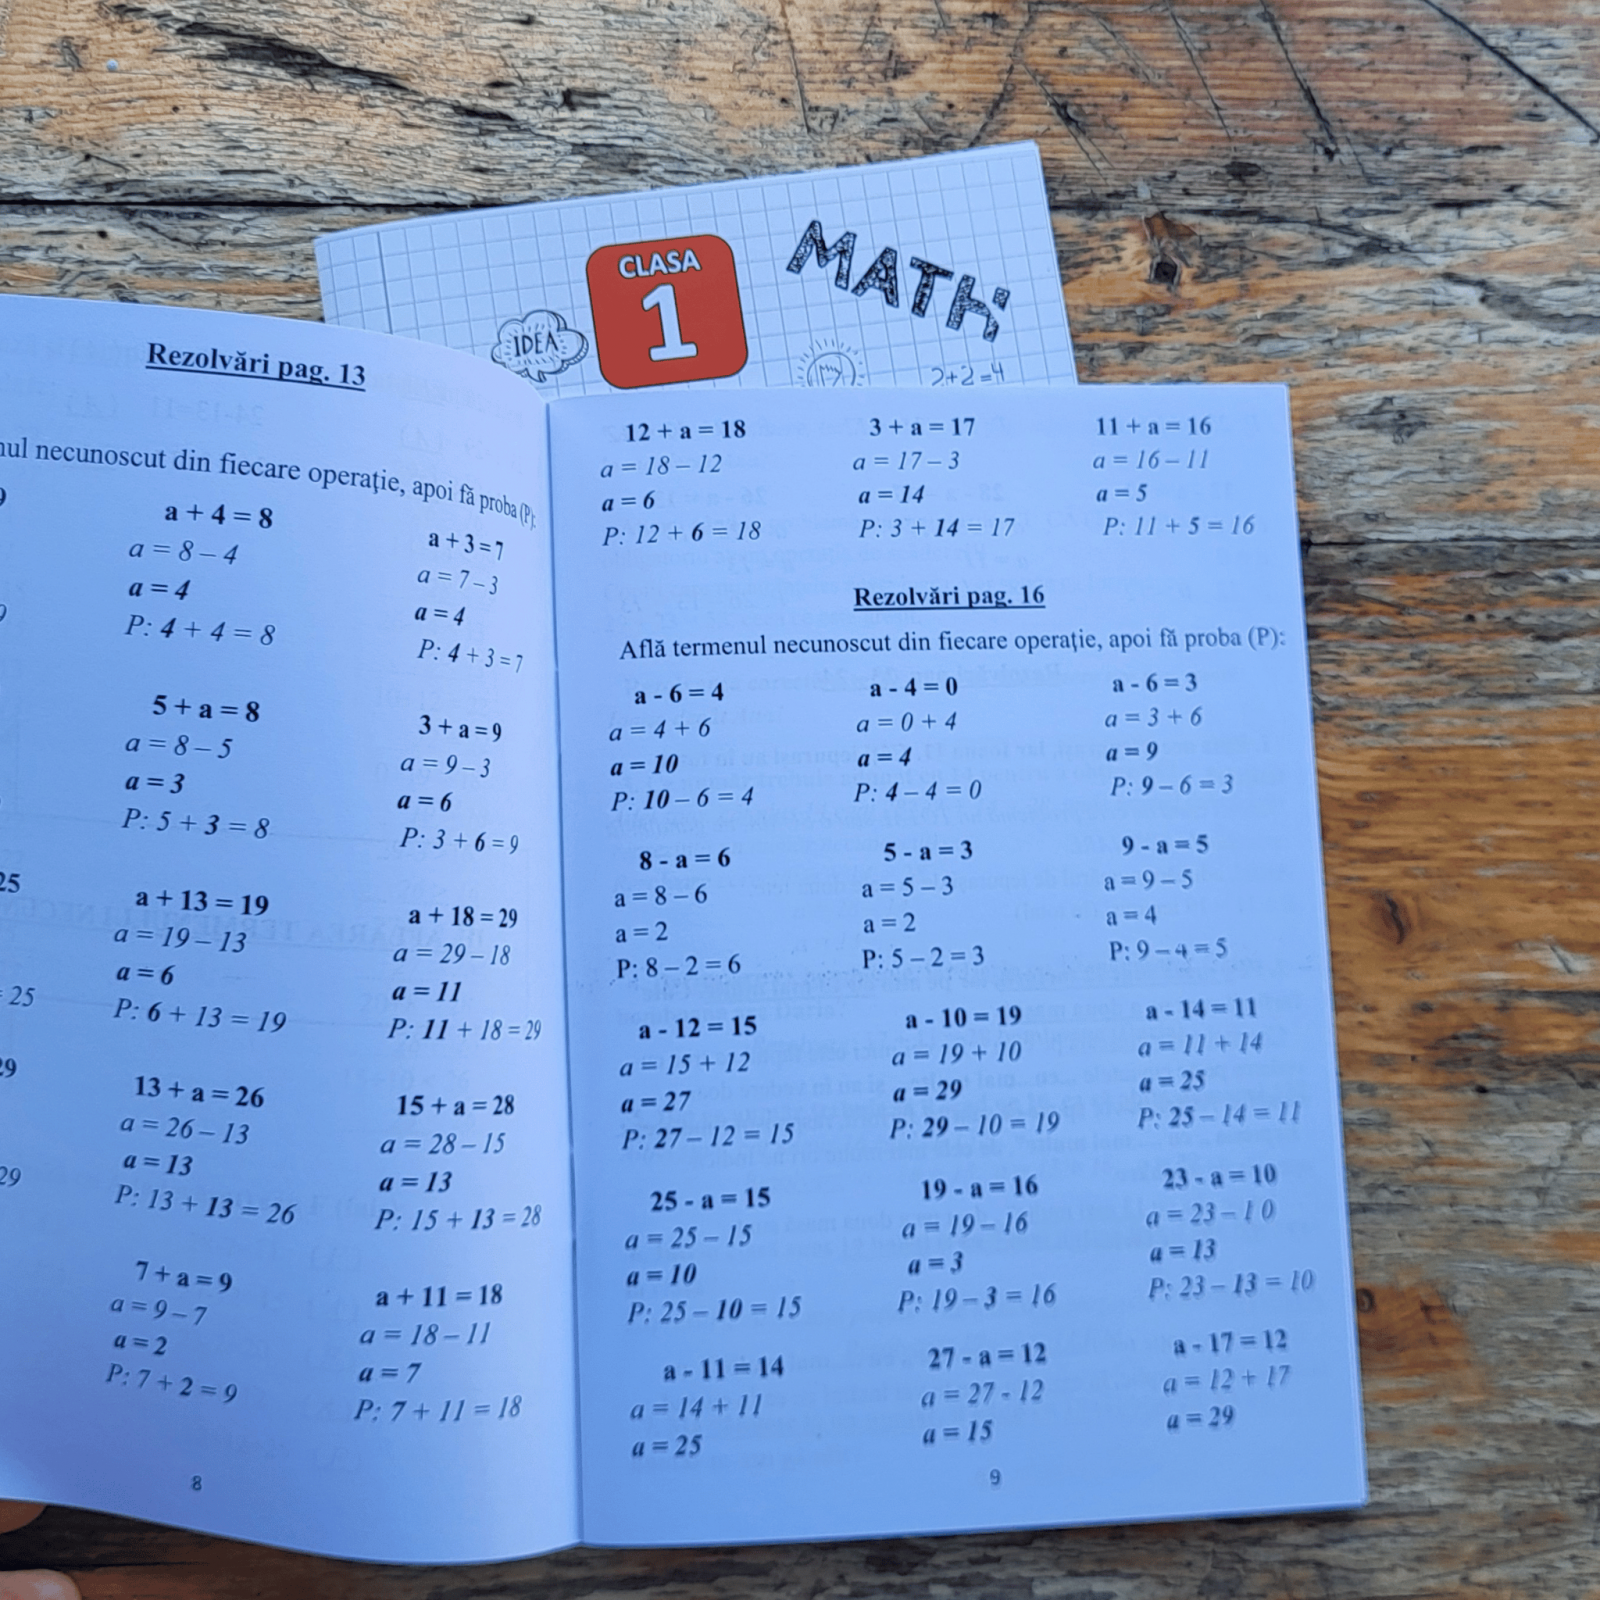 CLASA
1
MATH
IDEA
2+2=4
Rezolvări pag. 13
necunoscut din fiecare operaţie, apoi fă proba (P):
a + 4 = 8
a = 8 – 4
a = 4
P: 4 + 4 = 8
a + 3 = 7
a = 7 – 3
a = 4
P: 4 + 3 = 7
5 + a = 8
a = 8 – 5
a = 3
P: 5 + 3 = 8
3 + a = 9
a = 9 – 3
a = 6
P: 3 + 6 = 9
25
a + 13 = 19
a = 19 – 13
a = 6
P: 6 + 13 = 19
= 25
a + 18 = 29
a = 29 – 18
a = 11
P: 11 + 18 = 29
29
13 + a = 26
a = 26 – 13
a = 13
P: 13 + 13 = 26
29
15 + a = 28
a = 28 – 15
a = 13
P: 15 + 13 = 28
7 + a = 9
a = 9 – 7
a = 2
P: 7 + 2 = 9
a + 11 = 18
a = 18 – 11
a = 7
P: 7 + 11 = 18
8
12 + a = 18
a = 18 – 12
a = 6
P: 12 + 6 = 18
3 + a = 17
a = 17 – 3
a = 14
P: 3 + 14 = 17
11 + a = 16
a = 16 – 11
a = 5
P: 11 + 5 = 16
Rezolvări pag. 16
Află termenul necunoscut din fiecare operaţie, apoi fă proba (P):
a - 6 = 4
a = 4 + 6
a = 10
P: 10 – 6 = 4
a - 4 = 0
a = 0 + 4
a = 4
P: 4 – 4 = 0
a - 6 = 3
a = 3 + 6
a = 9
P: 9 – 6 = 3
8 - a = 6
a = 8 – 6
a = 2
P: 8 – 2 = 6
5 - a = 3
a = 5 – 3
a = 2
P: 5 – 2 = 3
9 - a = 5
a = 9 – 5
a = 4
P: 9 – 4 = 5
a - 12 = 15
a = 15 + 12
a = 27
P: 27 – 12 = 15
a - 10 = 19
a = 19 + 10
a = 29
P: 29 – 10 = 19
a - 14 = 11
a = 11 + 14
a = 25
P: 25 – 14 = 11
25 - a = 15
a = 25 – 15
a = 10
P: 25 – 10 = 15
19 - a = 16
a = 19 – 16
a = 3
P: 19 – 3 = 16
23 - a = 10
a = 23 – 1 0
a = 13
P: 23 – 13 = 10
a - 11 = 14
a = 14 + 11
a = 25
27 - a = 12
a = 27 - 12
a = 15
a - 17 = 12
a = 12 + 17
a = 29
9